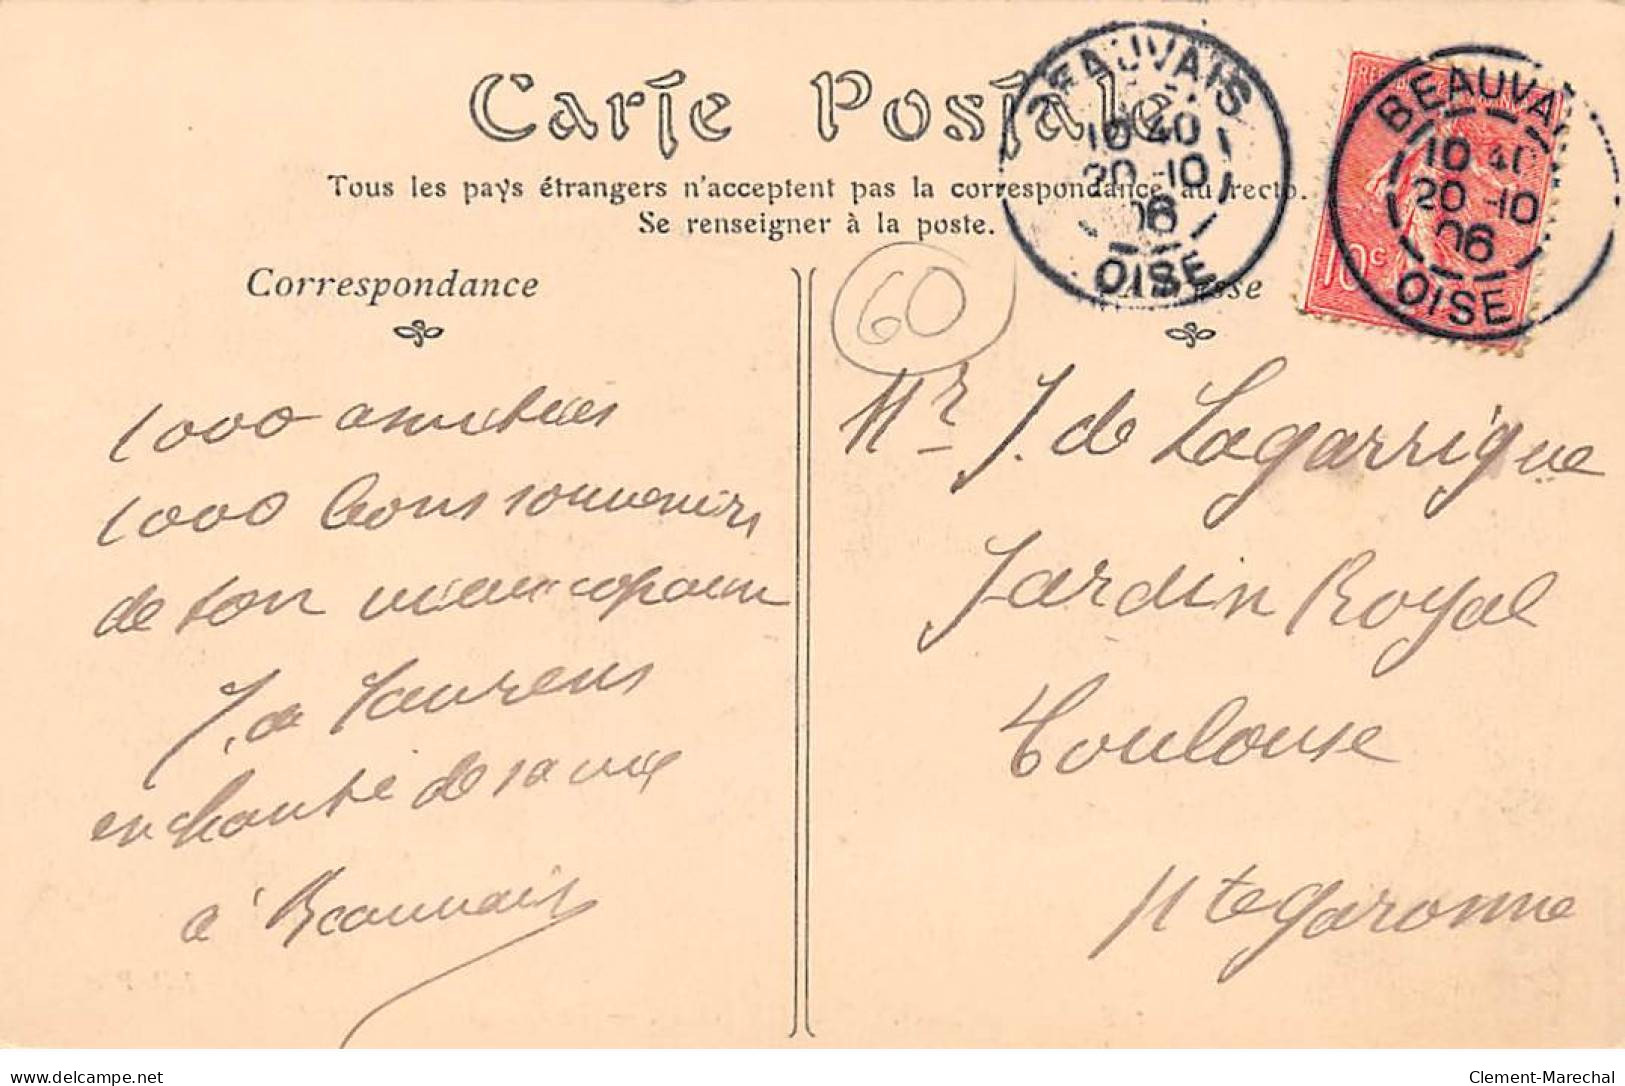 Carte Postale
Tous les pays étrangers n'acceptent pas la correspondance au recto.
Se renseigner à la poste.
BEAUVAIS
10 40
20 -10
06
OISE
BEAUVAI
10 40
20 -10
06
OISE
10c
Correspondance
60
1000 amitiés
1000 bons souvenirs
de ton vieux copain
J. de Laurens
enchanté de sa vie
à Beauvais
Mr J. de Lagarrigue
Jardin Royal
Toulouse
Hte Garonne
delcampe.net
Clement-Marechal